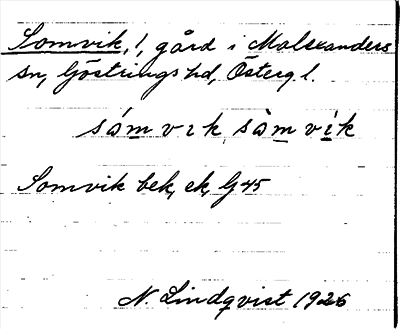 Somvik, 1, gård i Malexanders
sn, Göstrings hd, Österg l.
sómvık, sòmvík
Somvik bek, ek, G 45
N. Lindqvist 1926